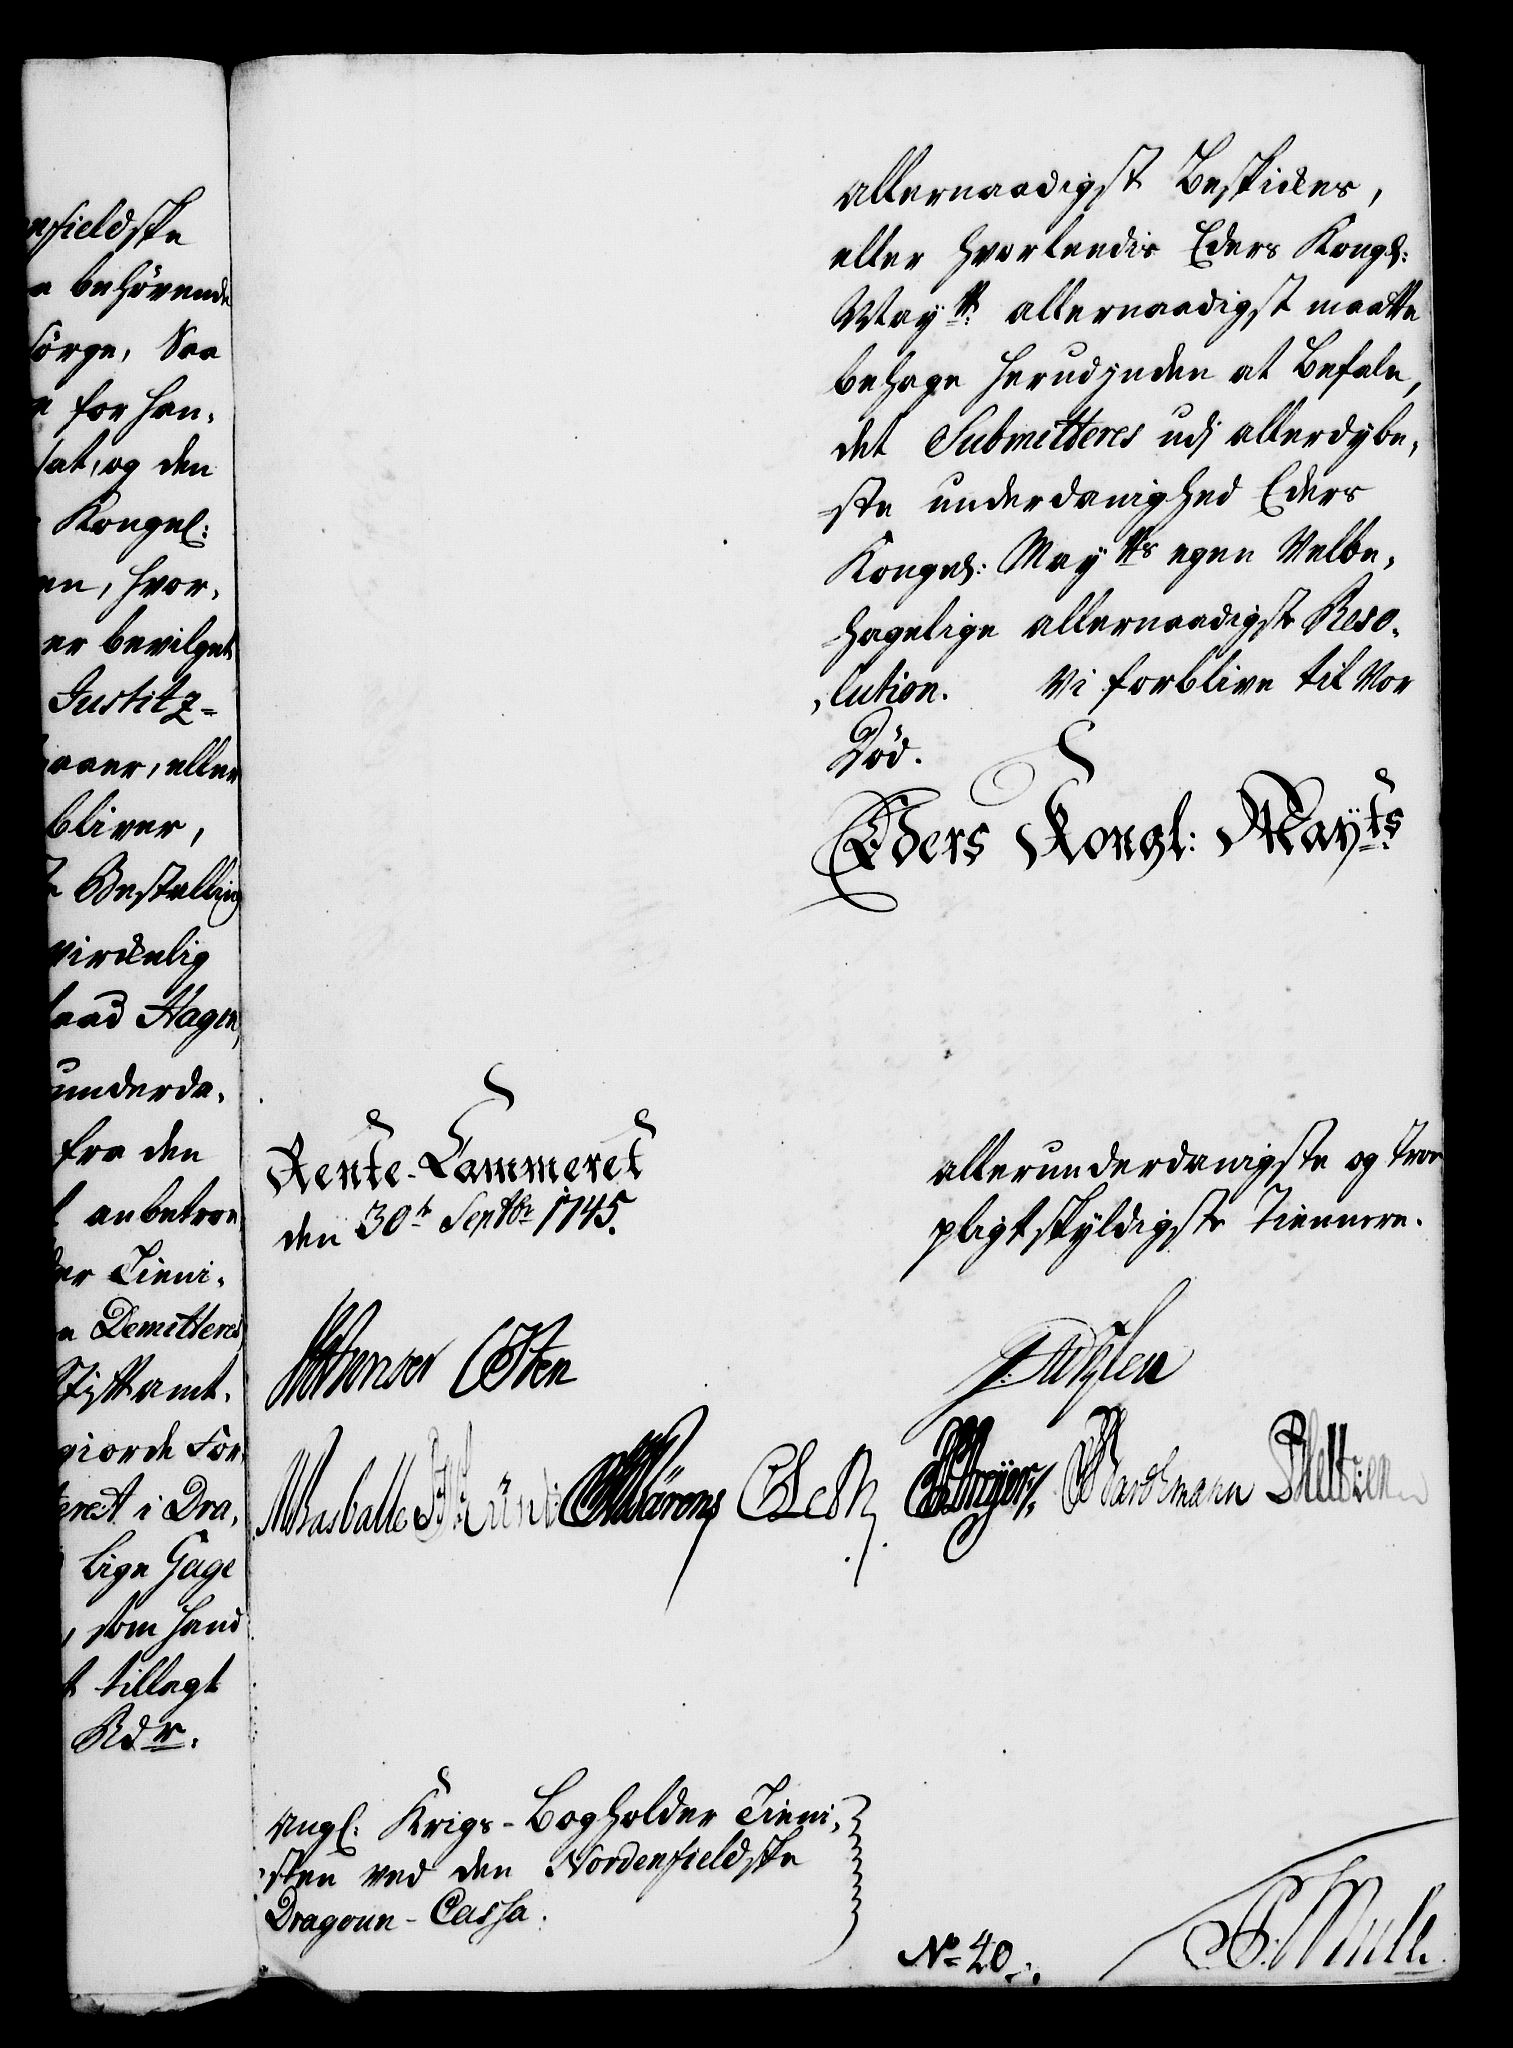 nfieldske
behörende
sörge, Saa
for han,
lat, og den
Kongel:
en, hvor,
er bevilget
Justitz=
aaer, eller
bliver,
Bestalling
virckelig
raad Hagen,
underda,
fra den
anbetroe
der Tieni,
Demitteres
Stifttamt,
giorde For,
teret i Dra,
lige Gage
, som hand
t tillagt
Rdr.
allernaadigst Beskickes,
eller hvorleedis Eders Kongl:
Maytt: allernaadigst maatte
behage herudjnden at befale,
det Submitteres udj allerdybe,
=ste underdanighed Eders
Kongel: Maytts egen Velbe,
hagelige allernaadigste Reso,
,lution. Vi forblive til Vor
Död.
Eders Kongl: Mayts
Rente-Cammeret
den 30te Septbr 1745.
allerunderdanigste og troe
pligtskyldigste Tiennere.
Osten
MBasballe
Wardemann
Angl: Krigs-Bogholder Tieni,
,sten ved den Nordenfieldske
Dragoun-Cassa.
No 40